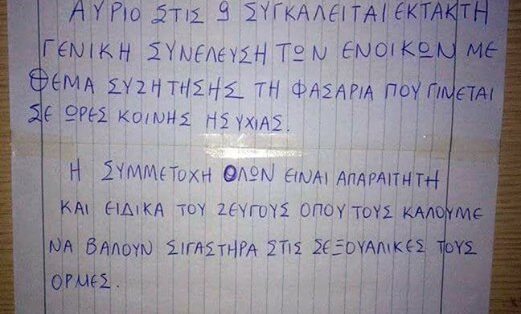 ΑΥΡΙΟ ΣΤΙΣ 9 ΣΥΓΚΑΛΕΙΤΑΙ ΕΚΤΑΚΤΗ
ΓΕΝΙΚΗ ΣΥΝΕΛΕΥΣΗ ΤΩΝ ΕΝΟΙΚΩΝ ΜΕ
ΘΕΜΑ ΣΥΖΗΤΗΣΗΣ ΤΗ ΦΑΣΑΡΙΑ ΠΟΥ ΓΙΝΕΤΑΙ
ΣΕ ΩΡΕΣ ΚΟΙΝΗΣ ΗΣΥΧΙΑΣ.
Η ΣΥΜΜΕΤΟΧΗ ΟΛΩΝ ΕΙΝΑΙ ΑΠΑΡΑΙΤΗΤΗ
ΚΑΙ ΕΙΔΙΚΑ ΤΟΥ ΖΕΥΓΟΥΣ ΟΠΟΥ ΤΟΥΣ ΚΑΛΟΥΜΕ
ΝΑ ΒΑΛΟΥΝ ΣΙΓΑΣΤΗΡΑ ΣΤΙΣ ΣΕΞΟΥΑΛΙΚΕΣ ΤΟΥΣ
ΟΡΜΕΣ.